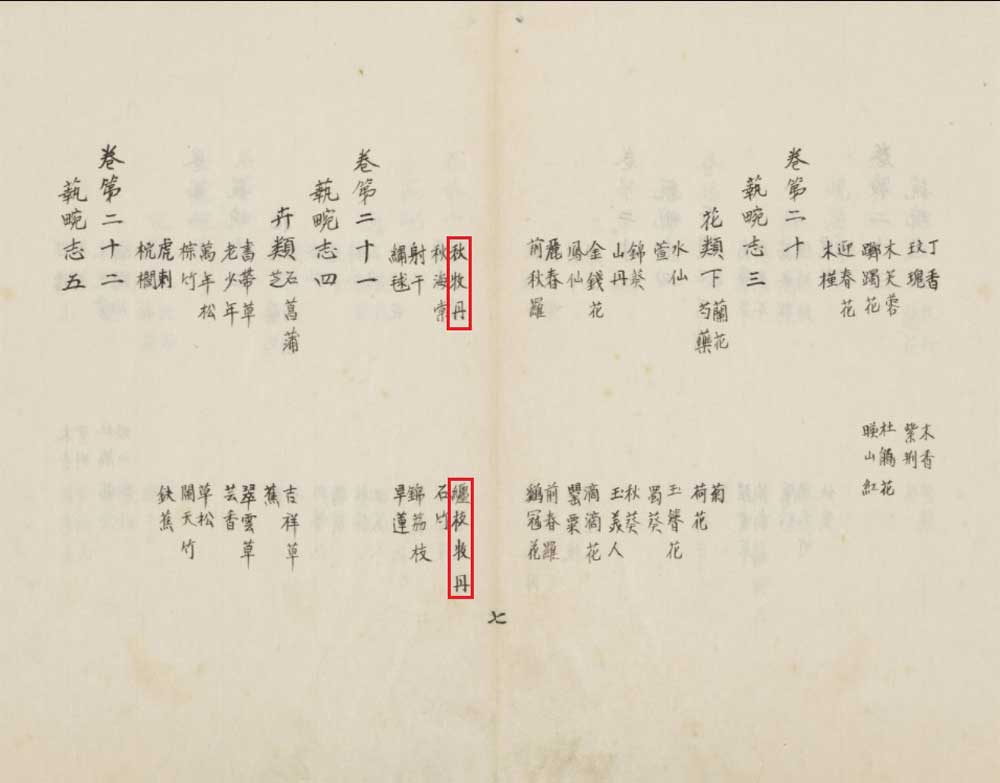 丁香 木香
玟瑰 紫荆
木芙蓉 杜鵑花
躑躅花 映山紅
迎春花
木槿
卷第二十
蓺畹志三
花類下 蘭花 菊
芍藥 荷花
水仙 玉簪花
萱 蜀葵
錦葵 秋葵
山丹 玉美人
金錢花 滴滴花
鳳仙 罌粟
麗春 前春羅
前秋羅 鷄冠花
七
秋牧丹 纏枝牧丹
秋海棠 石竹
射干 錦茘枝
繡毬 旱蓮
卷第二十一
蓺畹志四
卉類 石菖蒲 吉祥草
芝 蕉
書帶草 翠雲草
老少年 芸香
萬年松 草松
棕竹 闌天竹
虎刺 鉄蕉
桄榔
卷第二十二
蓺畹志五